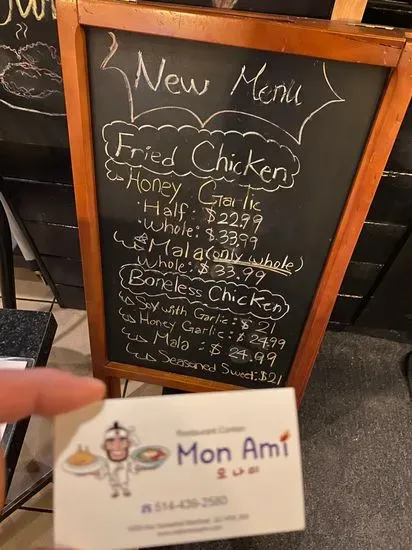 New Menu
Fried Chicken
Honey Garlic
• Half: $22.99
• Whole: $33.99
Mala (only whole)
Whole: $33.99
Boneless Chicken
Soy with Garlic: $21
Honey Garlic: $24.99
Mala: $24.99
Seasoned Sweet: $21
Restaurant Coréen
Mon Ami
모나미
514-439-2580